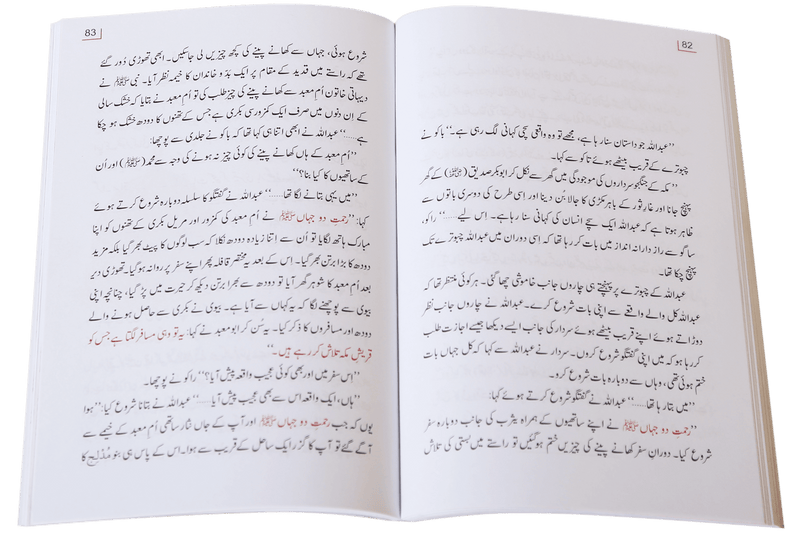 82
”عبداللہ جو داستان سنا رہا ہے، مجھے تو وہ واقعی سچی کہانی لگ رہی ہے۔“ باکو نے
چبوترے کے قریب بیٹھے ہوئے تاکو سے کہا۔
”مکہ کے جنگجو سرداروں کی موجودگی میں گھر سے نکل کر ابوبکر صدیق (ؓ) کے گھر
پہنچ جانا اور غارِ ثور کے باہر مکڑی کا جالا بُن دینا اور اسی طرح کی دوسری باتوں سے
ظاہر ہوتا ہے کہ عبداللہ ایک سچے انسان کی کہانی سنا رہا ہے۔ اس لیے......“ راکو،
ساگو سے راز دارانہ انداز میں بات کر رہا تھا کہ اسی دوران میں عبداللہ چبوترے تک
پہنچ چکا تھا۔
عبداللہ کے چبوترے پر پہنچتے ہی چاروں جانب خاموشی چھا گئی۔ ہر کوئی منتظر تھا کہ
عبداللہ کل والے واقعے سے اپنی بات شروع کرے۔ عبداللہ نے چاروں جانب نظر
دوڑاتے ہوئے اپنے قریب بیٹھے ہوئے سردار کی جانب ایسے دیکھا جیسے اجازت طلب
کر رہا ہو کہ میں اپنی گفتگو شروع کروں۔ سردار نے عبداللہ سے کہا کہ کل جہاں بات
ختم ہوئی تھی، وہاں سے دوبارہ بات شروع کرو۔
”میں بتا رہا تھا......“ عبداللہ نے گفتگو شروع کرتے ہوئے کہا:
”رحمتِ دو جہاں ﷺ نے اپنے ساتھیوں کے ہمراہ یثرب کی جانب دوبارہ سفر
شروع کیا۔ دورانِ سفر کھانے پینے کی چیزیں ختم ہو گئیں تو راستے میں بستی کی تلاش
83
شروع ہوئی، جہاں سے کھانے پینے کی کچھ چیزیں لی جاسکیں۔ ابھی تھوڑی دُور گئے
تھے کہ راستے میں قدید کے مقام پر ایک بدو خاندان کا خیمہ نظر آیا۔ نبی ﷺ نے
دیہاتی خاتون اُم معبد سے کھانے پینے کی چیز طلب کی تو اُم معبد نے بتایا کہ خشک سالی
کے اِن دنوں میں صرف ایک کمزور سی بکری ہے جس کے تھنوں کا دودھ خشک ہو چکا
ہے......“ عبداللہ نے ابھی اتنا ہی کہا تھا کہ باکو نے جلدی سے پوچھا:
”اُم معبد کے ہاں کھانے پینے کی کوئی چیز نہ ہونے کی وجہ سے محمد (ﷺ) اور اُن
کے ساتھیوں کا کیا بنا؟“
”میں یہی بتانے لگا تھا......“ عبداللہ نے گفتگو کا سلسلہ دوبارہ شروع کرتے ہوئے
کہا: ”رحمتِ دو جہاں ﷺ نے اُم معبد کی کمزور اور مریل بکری کے تھنوں کو اپنا
مبارک ہاتھ لگایا تو اُن سے اتنا زیادہ دودھ نکلا کہ سب لوگوں کا پیٹ بھر گیا بلکہ مزید
دودھ کا بڑا برتن بھر گیا۔ اِس کے بعد یہ مختصر قافلہ پھر اپنے سفر پر روانہ ہو گیا۔ تھوڑی دیر
بعد اُم معبد کا شوہر گھر آیا تو دودھ سے بھرا برتن دیکھ کر حیرت میں پڑ گیا، چنانچہ اپنی
بیوی سے پوچھنے لگا کہ یہ کہاں سے آیا ہے۔ بیوی نے بکری سے حاصل ہونے والے
دودھ اور مسافروں کا ذکر کیا۔ یہ سُن کر ابو معبد نے کہا: یہ تو وہی مسافر لگتا ہے جس کو
قریشِ مکہ تلاش کر رہے ہیں۔“
”اِس سفر میں اور بھی کوئی عجیب واقعہ پیش آیا؟“ راکو نے پوچھا۔
”ہاں، ایک واقعہ اس سے بھی عجیب پیش آیا......“ عبداللہ نے بتانا شروع کیا: ”ہوا
یوں کہ جب رحمتِ دو جہاں ﷺ اور آپ کے جاں نثار ساتھی اُم معبد کے خیمے سے
آگے گئے تو آپ کا گزر ایک ساحل کے قریب سے ہوا۔ اس کے پاس ہی بنو مُدلج کا